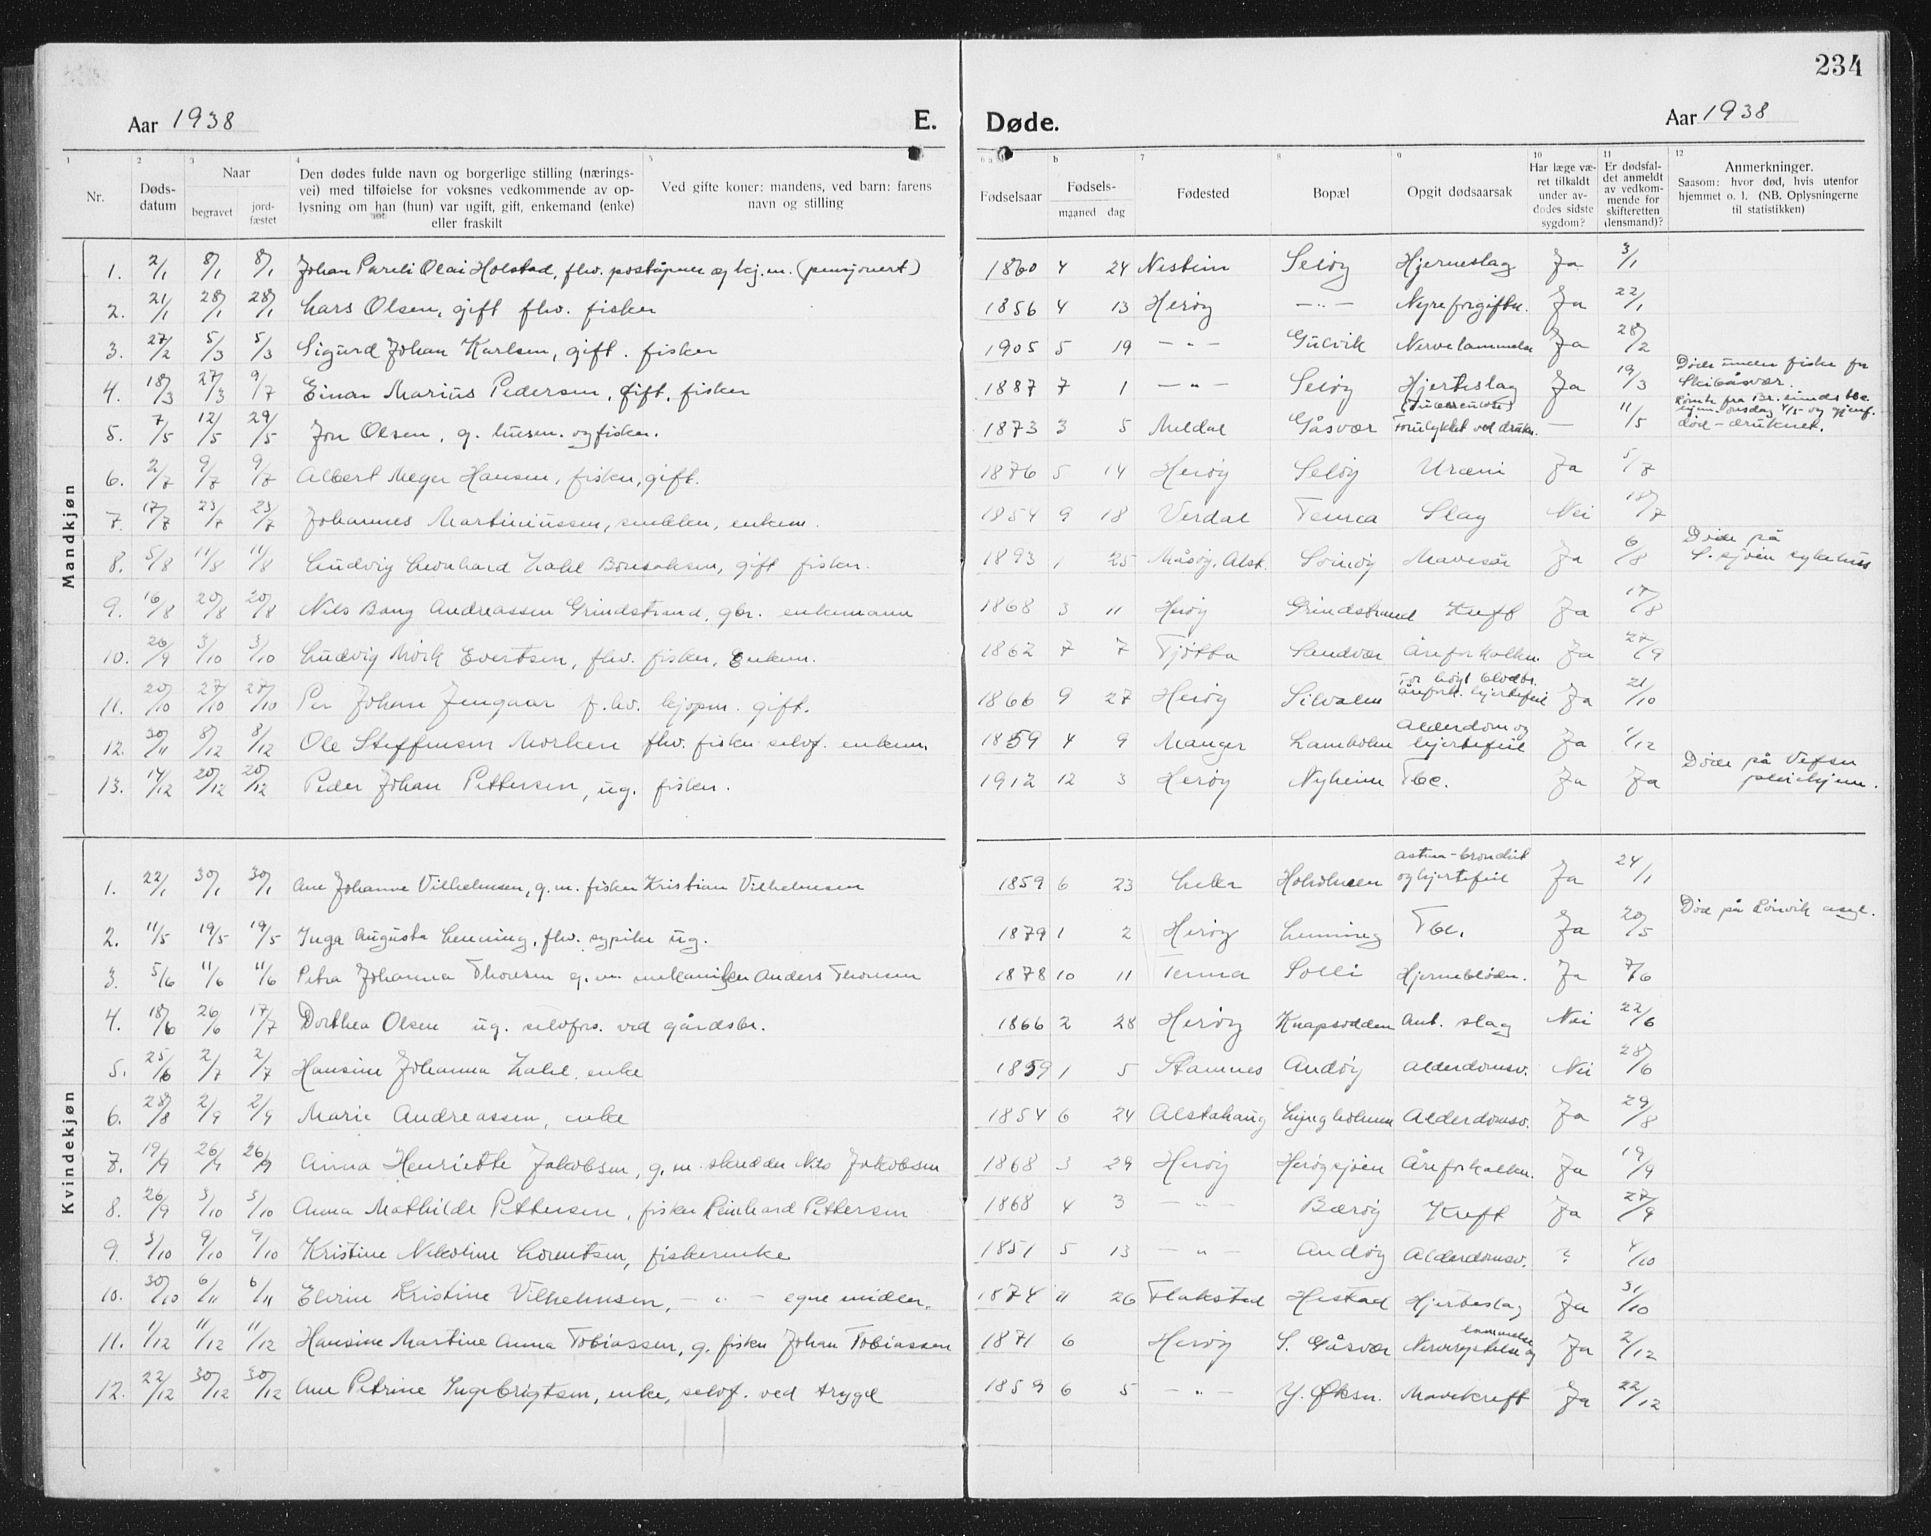 234
Aar 1938 E. Døde. Aar 1938
1 2 3 4 5 6 a b 7 8 9 10 11 12
Nr. Døds-datum Naar begravet jord-fæstet Den dødes fulde navn og borgerlige stilling (nærings-vei) med tilføielse for voksnes vedkommende av op-lysning om han (hun) var ugift, gift, enkemand (enke) eller fraskilt Ved gifte koner: mandens, ved barn: farens navn og stilling Fødselsaar Fødsels- maaned dag Fødested Bopæl Opgit dødsaarsak Har læge væ-ret tilkaldt under av-dødes sidste sygdom? Er dødsfal-det anmeldt av vedkom-mende for skifteretten (lensmand)? Anmerkninger. Saasom: hvor død, hvis utenfor hjemmet o. l. (NB. Oplysningerne til statistikken)
Mandkjøn
1. 2/1 8/1 8/1 Johan Pareli Olai Holstad, flv. poståpner og kj.m. (pensjonert) 1860 4 24 Seløy Hjerneslag Ja 3/1
2. 21/1 28/1 28/1 Lars Olsen, gift flv. fisker 1856 4 13 Herøy —"— Nyreforgiftn. Ja 22/1
3. 27/2 5/3 5/3 Sigurd Johan Karlsen, gift. fisker 1905 5 19 —"— Gulvik Nervelammelse Ja 28/2
4. 18/3 27/3 9/7 Einar Marius Pedersen, gift, fisker 1887 7 1 —"— Seløy Hjerteslag Ja 19/3 Døde under fiske fra Skibåsvær.
5. 7/5 12/5 29/5 Jon Olsen, g. husm. og fisker. 1873 3 5 Meldal Gåsvær (Tuberculose) Forulykket ved drukn. — 11/5 Rømte fra Br.sunds tbc. hjem onsdag 4/5 og gjenf. død – druknet.
6. 2/7 9/7 9/7 Albert Meyer Hansen, fisker, gift. 1876 5 14 Herøy Seløy Uræmi Ja 5/7
7. 17/7 23/7 23/7 Johannes Martiniussen, snekker, enkem. 1854 9 18 Verdal Tenna Slag Nei 18/7
8. 5/8 11/8 11/8 Ludvig Leonhard Zahl Bonsaksen, gift fisker. 1893 1 25 Måsøy, Alst. Sørnøy Mavesår Ja 6/8 Døde på S.sjøen sykehus
9. 16/8 20/8 20/8 Nils Bang Andreassen Grindstrand, gbr. enkemann 1868 3 11 Herøy Grindstrand Kreft Ja 17/8
10. 26/9 3/10 3/10 Ludvig Mørk Evertsen, flv. fisker, Enkem. 1862 7 7 Tjøtta Sandvær Åreforkalkn. Ja 27/9
11. 20/10 27/10 27/10 Per Johan Zengaar f.hv. kjøpm. gift. 1866 9 27 Herøy Silvalen For høyt blodtr. åreforh. hjertefeil Ja 21/10
12. 30/11 8/12 8/12 Ole Steffensen Morken flv. fisker selvf. enkem. 1859 4 9 Manger Lamholm Alderdom og hjertefeil Ja 1/12
13. 14/12 20/12 20/12 Peder Johan Pettersen, ug. fisker. 1912 12 3 Herøy Nyheim Tbc. Ja Ja Døde på Vefsn pleiehjem.
Kvindekjøn
1. 22/1 30/1 30/1 Ane Johanne Vilhelmsen, g.m. fisker Kristian Vilhelmsen 1859 6 23 Leka Holholmen astma-bronchit og hjertefeil Ja 24/1
2. 11/5 19/5 19/5 Inga Augusta Lenning, flv. sypike ug. 1879 1 2 Herøy Lenning Tbc. Ja 20/5 Død på Rørvik asyl.
3. 5/6 11/6 11/6 Petra Johanna Thoresen g.m. mekaniker Anders Thoresen 1878 10 11 Tenna Solli Hjerneblødn. Ja 7/6
4. 18/6 26/6 17/7 Dorthea Olsen ug. selvfors. ved gårdsbr. 1866 2 28 Herøy Knapsodden Ant. slag Nei 22/6
5. 25/6 2/7 2/7 Hansine Johanna Zahl, enke 1859 1 5 Stamnes Andøy Alderdomssv. Nei 28/6
6. 28/8 2/9 2/9 Marie Andreassen, enke 1854 6 24 Alstahaug Lyngholmen Alderdomssv. Ja 29/8
7. 19/9 26/9 26/9 Anna Henriette Jakobsen, g.m. skredder Nils Jakobsen 1868 3 29 Herøy Herøysjøen Åreforkalkn. Ja 19/9
8. 26/9 3/10 3/10 Anna Mathilde Pettersen, fisker Reinhard Pettersen 1868 4 3 —"— Bærøy Kreft Ja 27/9
9. 3/10 9/10 9/10 Kristine Nikoline Lorentsen, fiskerenke 1851 5 13 —"— Andøy Alderdomssv. ? 4/10
10. 30/10 6/11 6/11 Elvine Kristine Vilhelmsen, —"— egne midler. 1874 11 26 Flakstad Hestad Hjerteslag Ja 31/10
11. 1/12 11/12 11/12 Hansine Martine Anna Tobiassen, g. fisker Johan Tobiassen 1871 6 Herøy S. Gåsvær Nerverystelse og lammelse Ja 2/12
12. 22/12 30/12 30/12 Ane Petrine Ingebrigtsen, enke, selvf. ved trygd 1859 6 5 —"— Y. Øksn. Mavekreft Ja 22/12